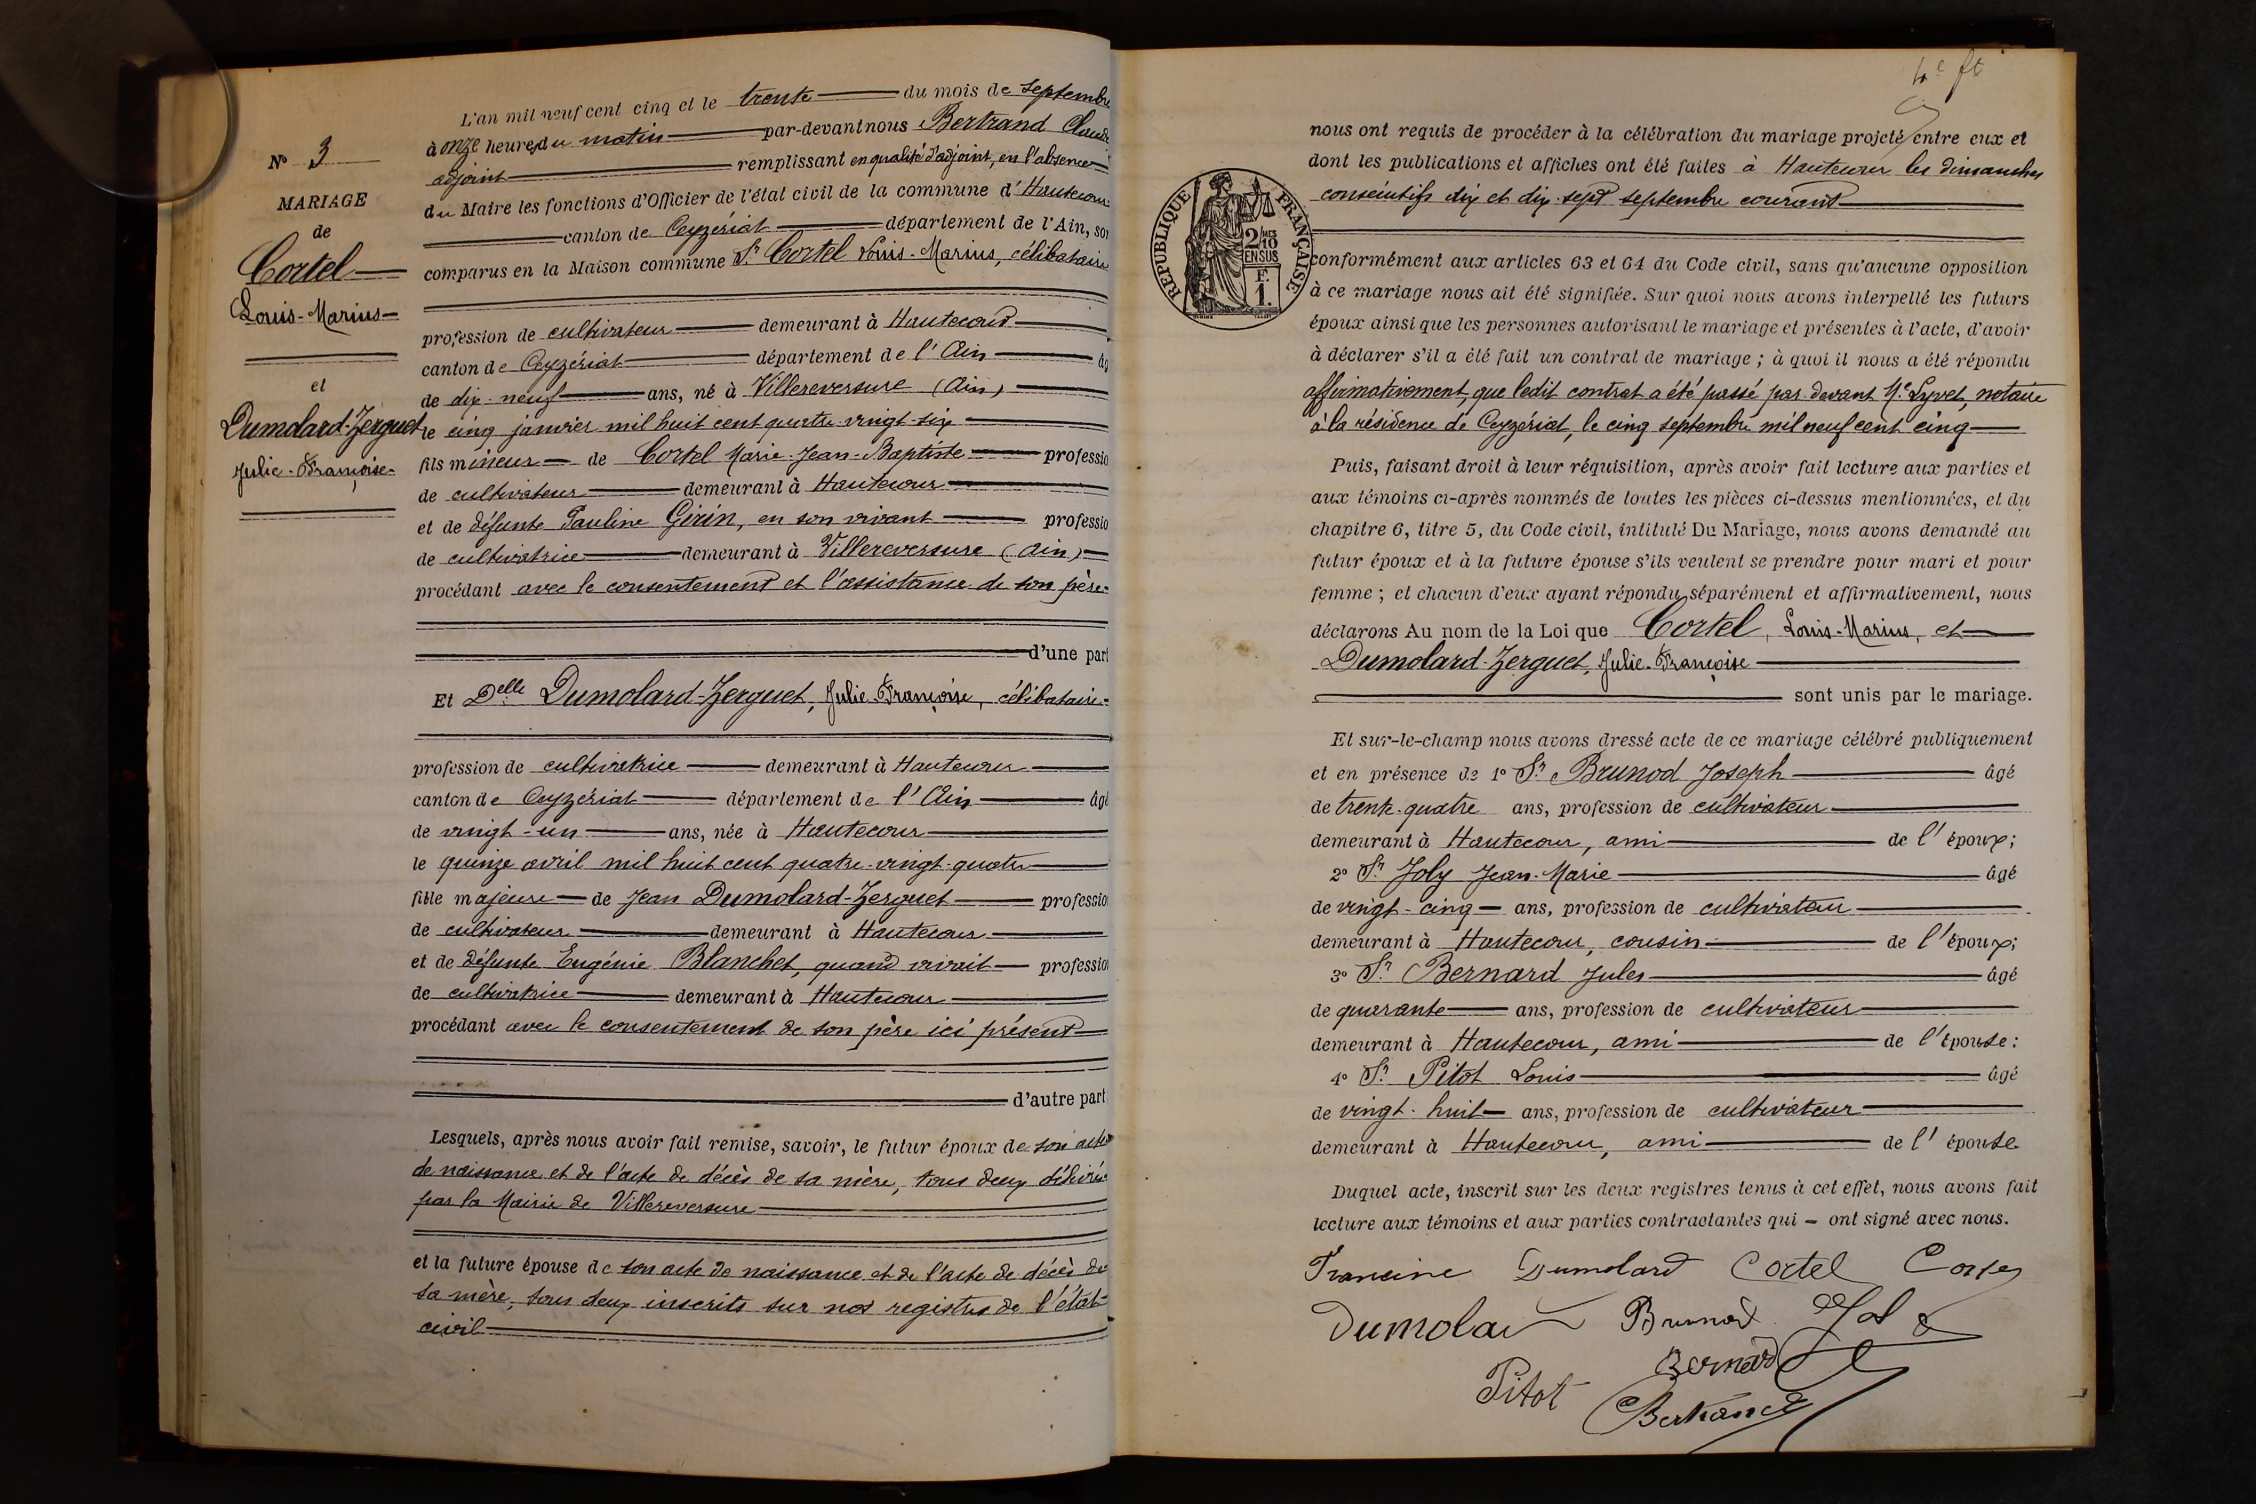 N° 3
MARIAGE
de
Cortel
Louis-Marius
et
Dumolard-Zerguet
Julie-Françoise
L'an mil neuf cent cinq et le trente du mois de septembre
à onze heures du matin par-devant nous Bertrand Claude
adjoint remplissant en qualité d'adjoint, en l'absence
du Maire les fonctions d'Officier de l'état civil de la commune d'Hautecour
canton de Ceyzériat département de l'Ain, son
comparus en la Maison commune Sr Cortel Louis-Marius, célibataire
profession de cultivateur demeurant à Hautecour
canton de Ceyzériat département de l'Ain âg
de dix-neuf ans, né à Villereversure (Ain)
le cinq janvier mil huit cent quatre vingt-six
fils mineur de Cortel Marie-Jean-Baptiste professio
de cultivateur demeurant à Hautecour
et de défunte Pauline Girin, en son vivant professio
de cultivatrice demeurant à Villereversure (Ain)
procédant avec le consentement et l'assistance de son père
d'une part
Et Delle Dumolard-Zerguet, Julie-Françoise, célibataire
profession de cultivatrice demeurant à Hautecour
canton de Ceyzériat département de l'Ain âgé
de vingt-un ans, née à Hautecour
le quinze avril mil huit cent quatre-vingt-quatre
fille majeure de Jean Dumolard-Zerguet profession
de cultivateur demeurant à Hautecour
et de défunte Eugénie Blanchet, quand vivait profession
de cultivatrice demeurant à Hautecour
procédant avec le consentement de son père ici présent
d'autre part
Lesquels, après nous avoir fait remise, savoir, le futur époux de son acte
de naissance et de l'acte de décès de sa mère, tous deux délivrés
par la Mairie de Villereversure
et la future épouse de son acte de naissance et de l'acte de décès de
sa mère, tous deux inscrits sur nos registres de l'état-
civil
RÉPUBLIQUE FRANÇAISE
2/10 MES
EN SUS
F.
1.
nous ont requis de procéder à la célébration du mariage projeté entre eux et
dont les publications et affiches ont été faites à Hautecour les dimanches
consécutifs dix et dix-sept septembre courant
conformément aux articles 63 et 64 du Code civil, sans qu'aucune opposition
à ce mariage nous ait été signifiée. Sur quoi nous avons interpellé les futurs
époux ainsi que les personnes autorisant le mariage et présentes à l'acte, d'avoir
à déclarer s'il a été fait un contrat de mariage ; à quoi il nous a été répondu
affirmativement, que ledit contrat a été passé par devant Me Lyvet, notaire
à la résidence de Ceyzériat, le cinq septembre mil neuf cent cinq
Puis, faisant droit à leur réquisition, après avoir fait lecture aux parties et
aux témoins ci-après nommés de toutes les pièces ci-dessus mentionnées, et du
chapitre 6, titre 5, du Code civil, intitulé Du Mariage, nous avons demandé au
futur époux et à la future épouse s'ils veulent se prendre pour mari et pour
femme ; et chacun d'eux ayant répondu séparément et affirmativement, nous
déclarons Au nom de la Loi que Cortel, Louis-Marius, et
Dumolard-Zerguet, Julie-Françoise
sont unis par le mariage.
Et sur-le-champ nous avons dressé acte de ce mariage célébré publiquement
et en présence de 1° Sr Brunod Joseph âgé
de trente-quatre ans, profession de cultivateur
demeurant à Hautecour, ami de l'époux;
2° Sr Joly Jean-Marie âgé
de vingt-cinq ans, profession de cultivateur
demeurant à Hautecour, cousin de l'époux;
3° Sr Bernard Jules âgé
de quarante ans, profession de cultivateur
demeurant à Hautecour, ami de l'épouse:
4° Sr Pitot Louis âgé
de vingt-huit ans, profession de cultivateur
demeurant à Hautecour, ami de l'épouse
Duquel acte, inscrit sur les deux registres tenus à cet effet, nous avons fait
lecture aux témoins et aux parties contractantes qui ont signé avec nous.
Francine Dumolard Cortel
Dumolard Brunod
Bernard
Pitot
Bertrand